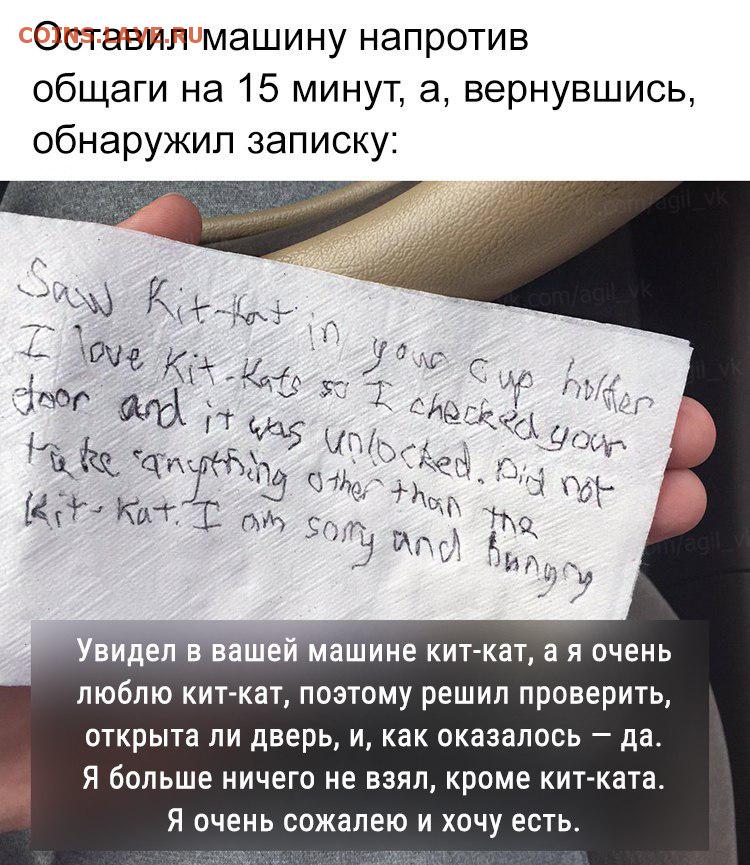 COINS.LAVE.RU
Оставил машину напротив
общаги на 15 минут, а, вернувшись,
обнаружил записку:
Saw Kit-Kat in your cup holder
I love Kit-Kats so I checked your
door and it was unlocked. Did not
take anything other than the
Kit-Kat. I am sorry and hungry
Увидел в вашей машине кит-кат, а я очень
люблю кит-кат, поэтому решил проверить,
открыта ли дверь, и, как оказалось — да.
Я больше ничего не взял, кроме кит-ката.
Я очень сожалею и хочу есть.